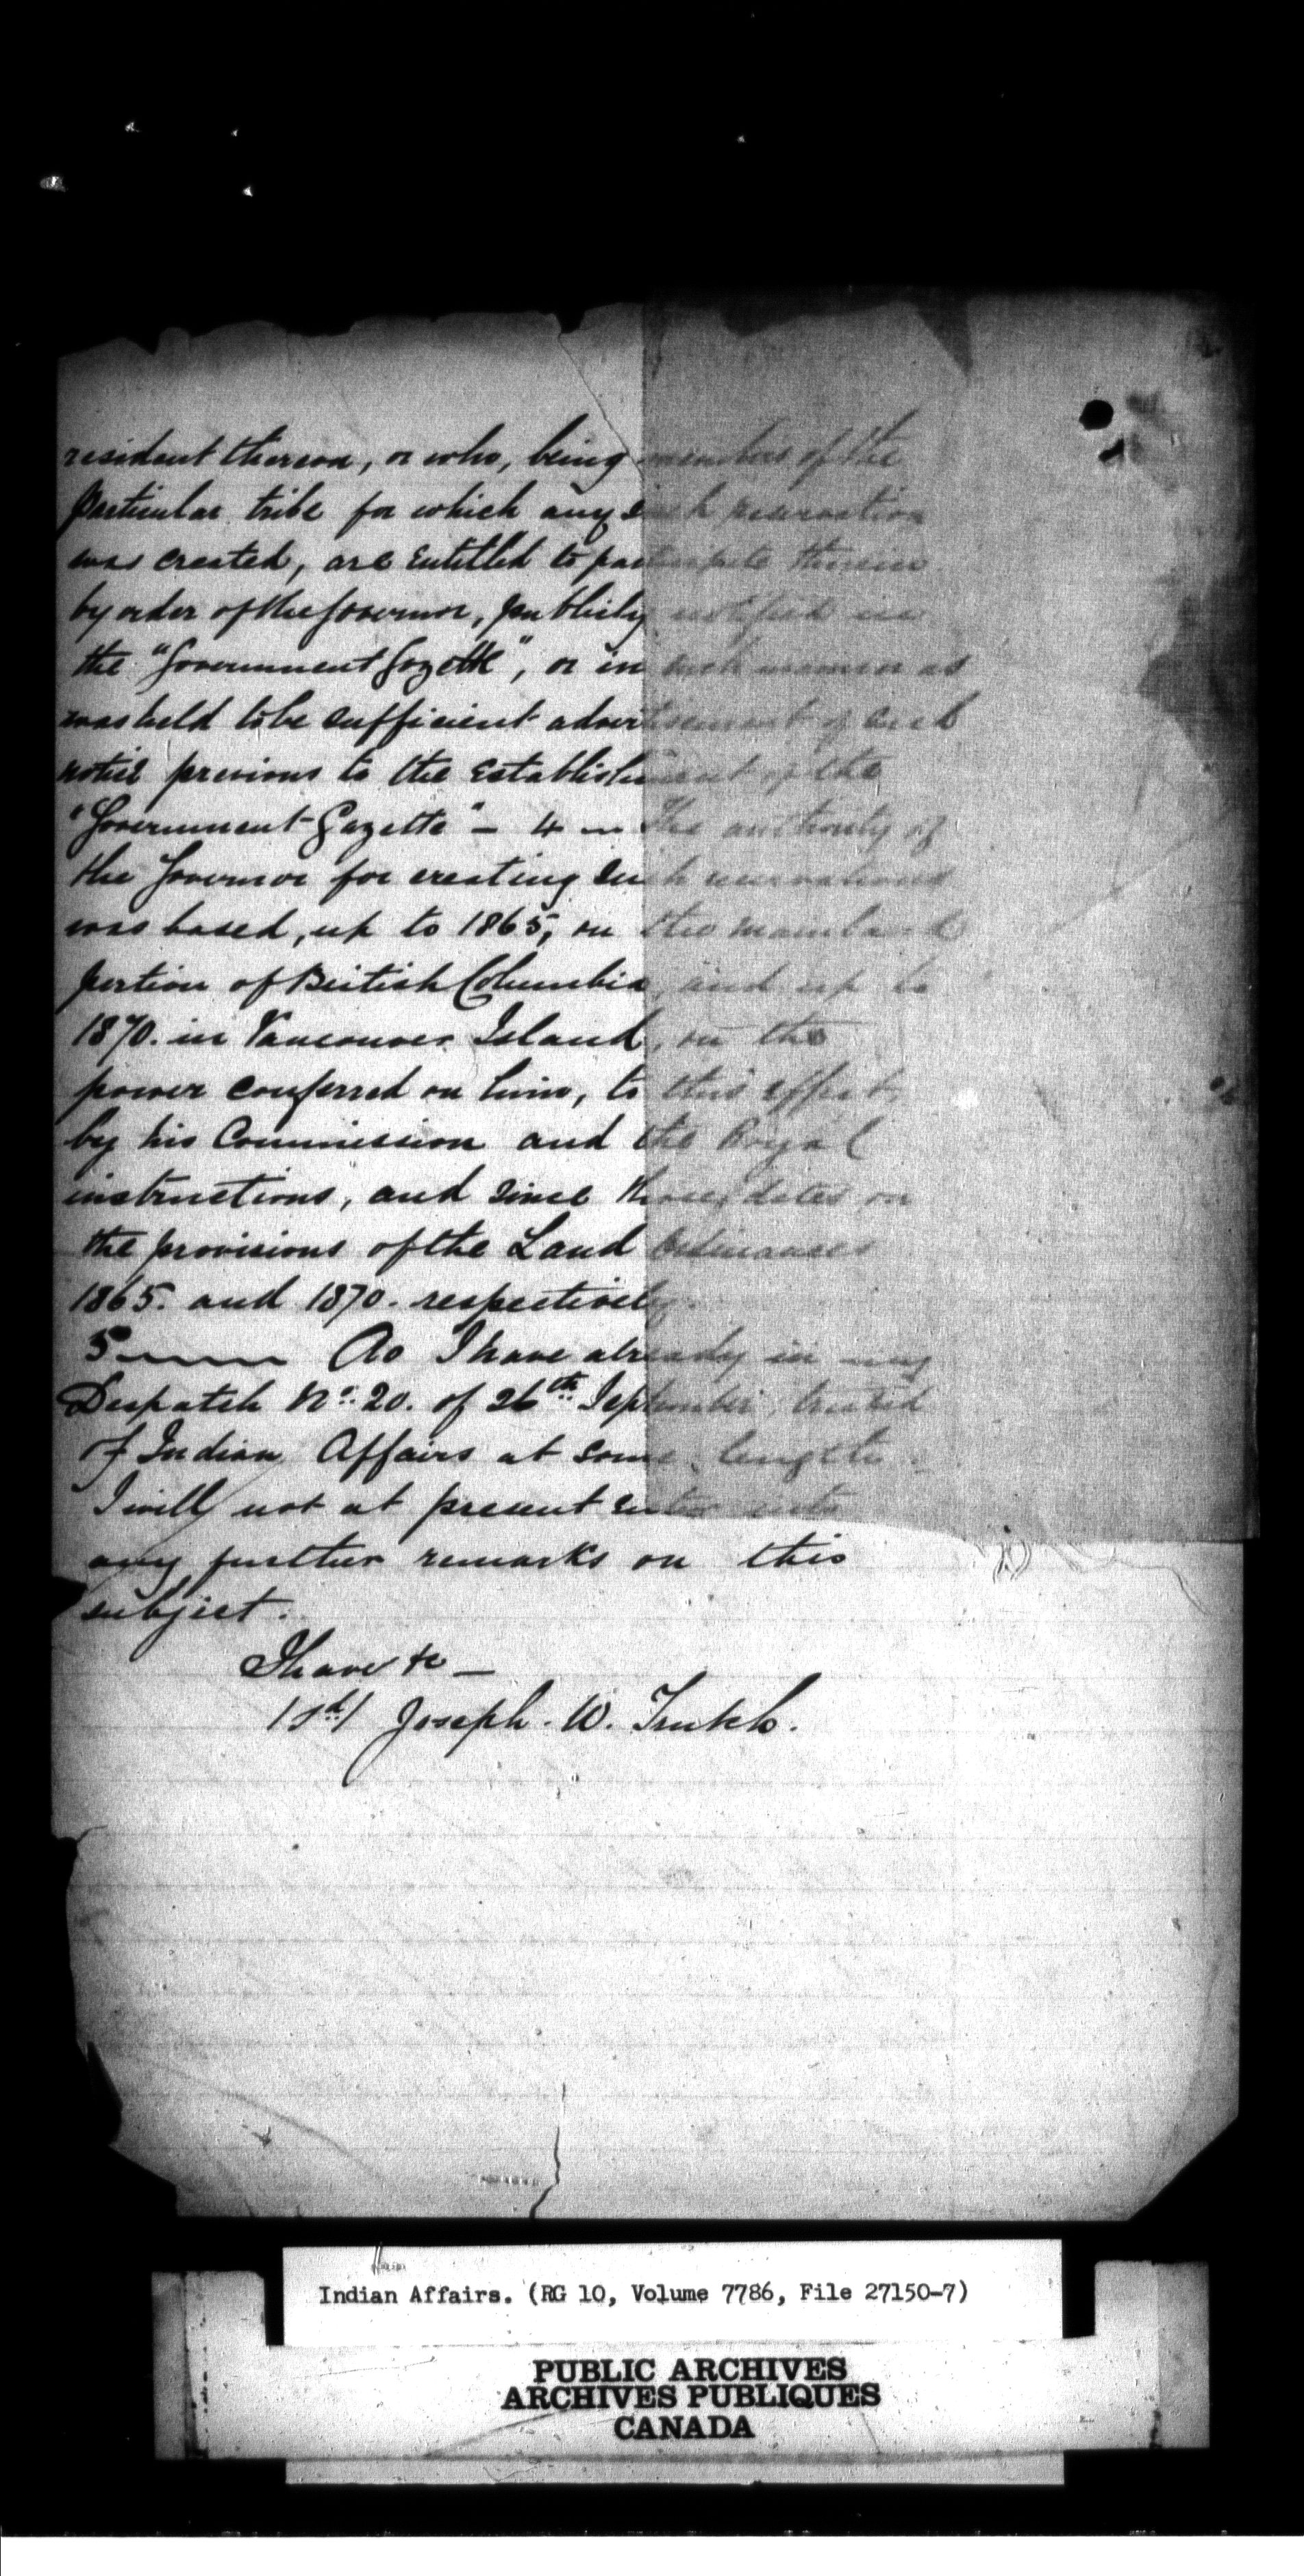 resident thereon, or who, being members of the
particular tribe for which any such reservation
was created, are entitled to participate therein
by order of the Governor, publicly notified in
the "Government Gazette", or in such manner as
was held to be sufficient advertisement of such
notice previous to the establishment of the
"Government Gazette" - 4 - The authority of
the Governor for creating such reservations
was based, up to 1865, on the mainland
portion of British Columbia, and up to
1870. in Vancouver Island, on the
power conferred on him, to this effect,
by his Commission and the Royal
instructions, and since those dates on
the provisions of the Land Ordinances
1865. and 1870. respectively.
5 As I have already in my
Despatch No. 20. of 26th September, treated
of Indian Affairs at some length
I will not at present enter into
any further remarks on this
subject.
I have &c -
/sd/ Joseph. W. Trutch.
Indian Affairs. (RG 10, Volume 7786, File 27150-7)
PUBLIC ARCHIVES
ARCHIVES PUBLIQUES
CANADA